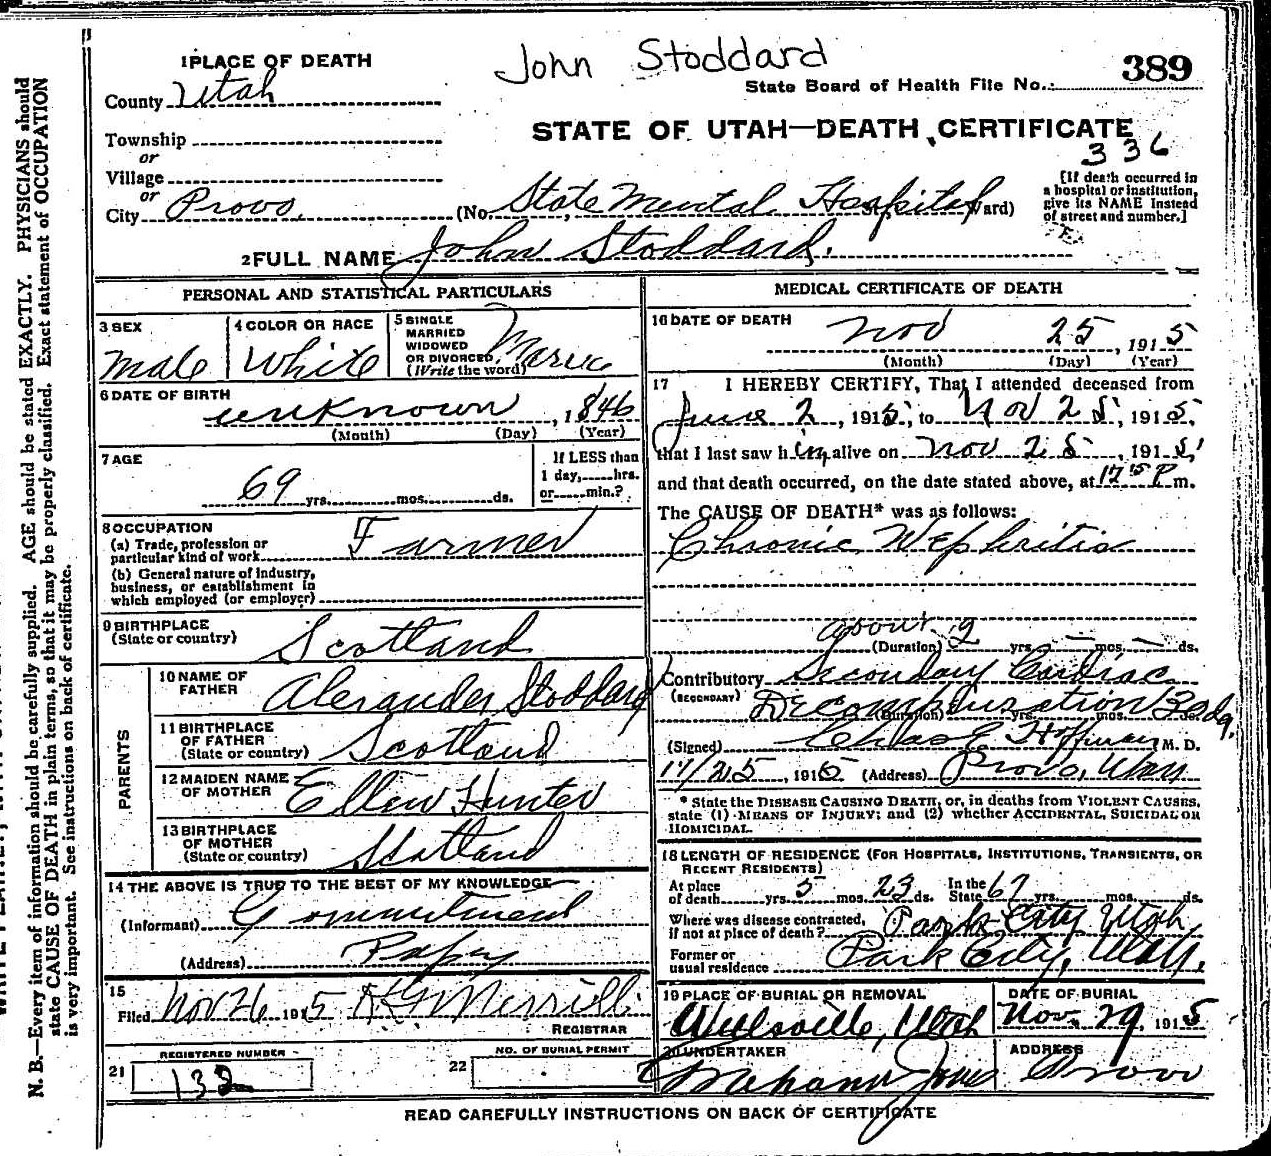 John Stoddard
389
1 PLACE OF DEATH
State Board of Health File No.
County Utah
STATE OF UTAH—DEATH CERTIFICATE
336
Township
or
Village
or
City Provo. (No. State Mental Hospital Ward)
[If death occurred in
a hospital or institution,
give its NAME instead
of street and number.]
2 FULL NAME John Stoddard.
PERSONAL AND STATISTICAL PARTICULARS
3 SEX
Male
4 COLOR OR RACE
White
5 SINGLE
MARRIED
WIDOWED
OR DIVORCED
(Write the word)
6 DATE OF BIRTH
unknown, 1846
(Month) (Day) (Year)
7 AGE
69 yrs. mos. ds.
If LESS than
1 day, hrs.
or min.?
8 OCCUPATION
(a) Trade, profession or
particular kind of work Farmer
(b) General nature of industry,
business, or establishment in
which employed (or employer)
9 BIRTHPLACE
(State or country) Scotland
PARENTS
10 NAME OF
FATHER Alexander Stoddard
11 BIRTHPLACE
OF FATHER
(State or country) Scotland
12 MAIDEN NAME
OF MOTHER Ellen Hunter
13 BIRTHPLACE
OF MOTHER
(State or country) Scotland
14 THE ABOVE IS TRUE TO THE BEST OF MY KNOWLEDGE
(Informant) Commitment
(Address)
15
Filed Nov 26 1915 Merrill
REGISTRAR
REGISTERED NUMBER
21 132
NO. OF BURIAL PERMIT
22
MEDICAL CERTIFICATE OF DEATH
16 DATE OF DEATH
Nov 25, 1915
(Month) (Day) (Year)
17 I HEREBY CERTIFY, That I attended deceased from
June 2, 1915, to Nov 25, 1915,
that I last saw him alive on Nov 25, 1915,
and that death occurred, on the date stated above, at 12 15 P m.
The CAUSE OF DEATH* was as follows:
Chronic Nephritis
about 2
(Duration) yrs. mos. ds.
Contributory Secondary Cardiac
(SECONDARY) Decompensation 30 da.
(Duration) yrs. mos. ds.
(Signed) Chas Hoffman M. D.
11/25, 1915 (Address) Provo, Utah
* State the DISEASE CAUSING DEATH, or, in deaths from VIOLENT CAUSES,
state (1) MEANS OF INJURY; and (2) whether ACCIDENTAL, SUICIDAL OR
HOMICIDAL.
18 LENGTH OF RESIDENCE (FOR HOSPITALS, INSTITUTIONS, TRANSIENTS, OR
RECENT RESIDENTS)
At place
of death yrs. 5 mos. 23 ds.
In the
State 67 yrs. mos. ds.
Where was disease contracted,
if not at place of death? Park City Utah
Former or
usual residence Park City, Utah.
19 PLACE OF BURIAL OR REMOVAL
Wellsville, Utah
DATE OF BURIAL
Nov. 29 1915
20 UNDERTAKER
ADDRESS
Provo
READ CAREFULLY INSTRUCTIONS ON BACK OF CERTIFICATE
N. B.—Every item of information should be carefully supplied. AGE should be stated EXACTLY. PHYSICIANS should
state CAUSE OF DEATH in plain terms, so that it may be properly classified. Exact statement of OCCUPATION
is very important. See instructions on back of certificate.